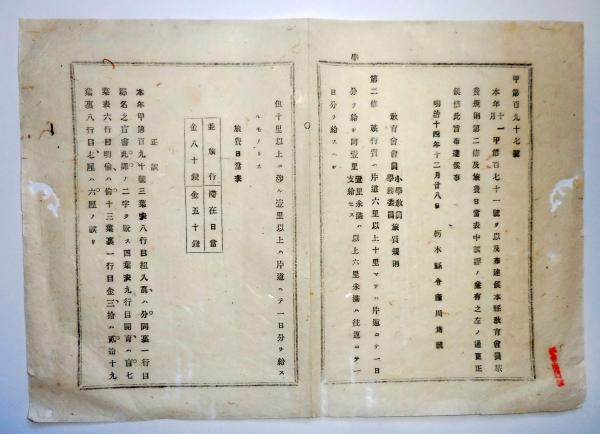 學
甲第百九十七號
本年十一月甲第百七十一號ヲ以及布達候本縣教育會員旅
費規則第二條及旅費日當表中誤謬ノ廉有之左ノ通更正
候條此旨布達候事
明治十四年十二月廿八日
栃木縣令藤川為親
教育會會員小學教員學務委員旅費規則
第二條 旅行費ハ片道六里以上十里マデハ片道ニテ一日
分ヲ給シ同壹里壹里未滿ハ支給セズ以上六里未滿ハ往返ニテ一
日分ヲ給スヘシ
但十里以上ニ渉ル壹里以上ハ片道ニテ一日分ヲ給ス
ルモノトス
旅費日當表
並旅行 滯在日當
金八十錢 金五十錢
正誤
本年甲第百九十號三葉表八行目組入高ハ分同裏一行目
三葉裏一行目金三拾ハ貳拾十九
葉裏八行目七厘ハ六厘ノ誤リ